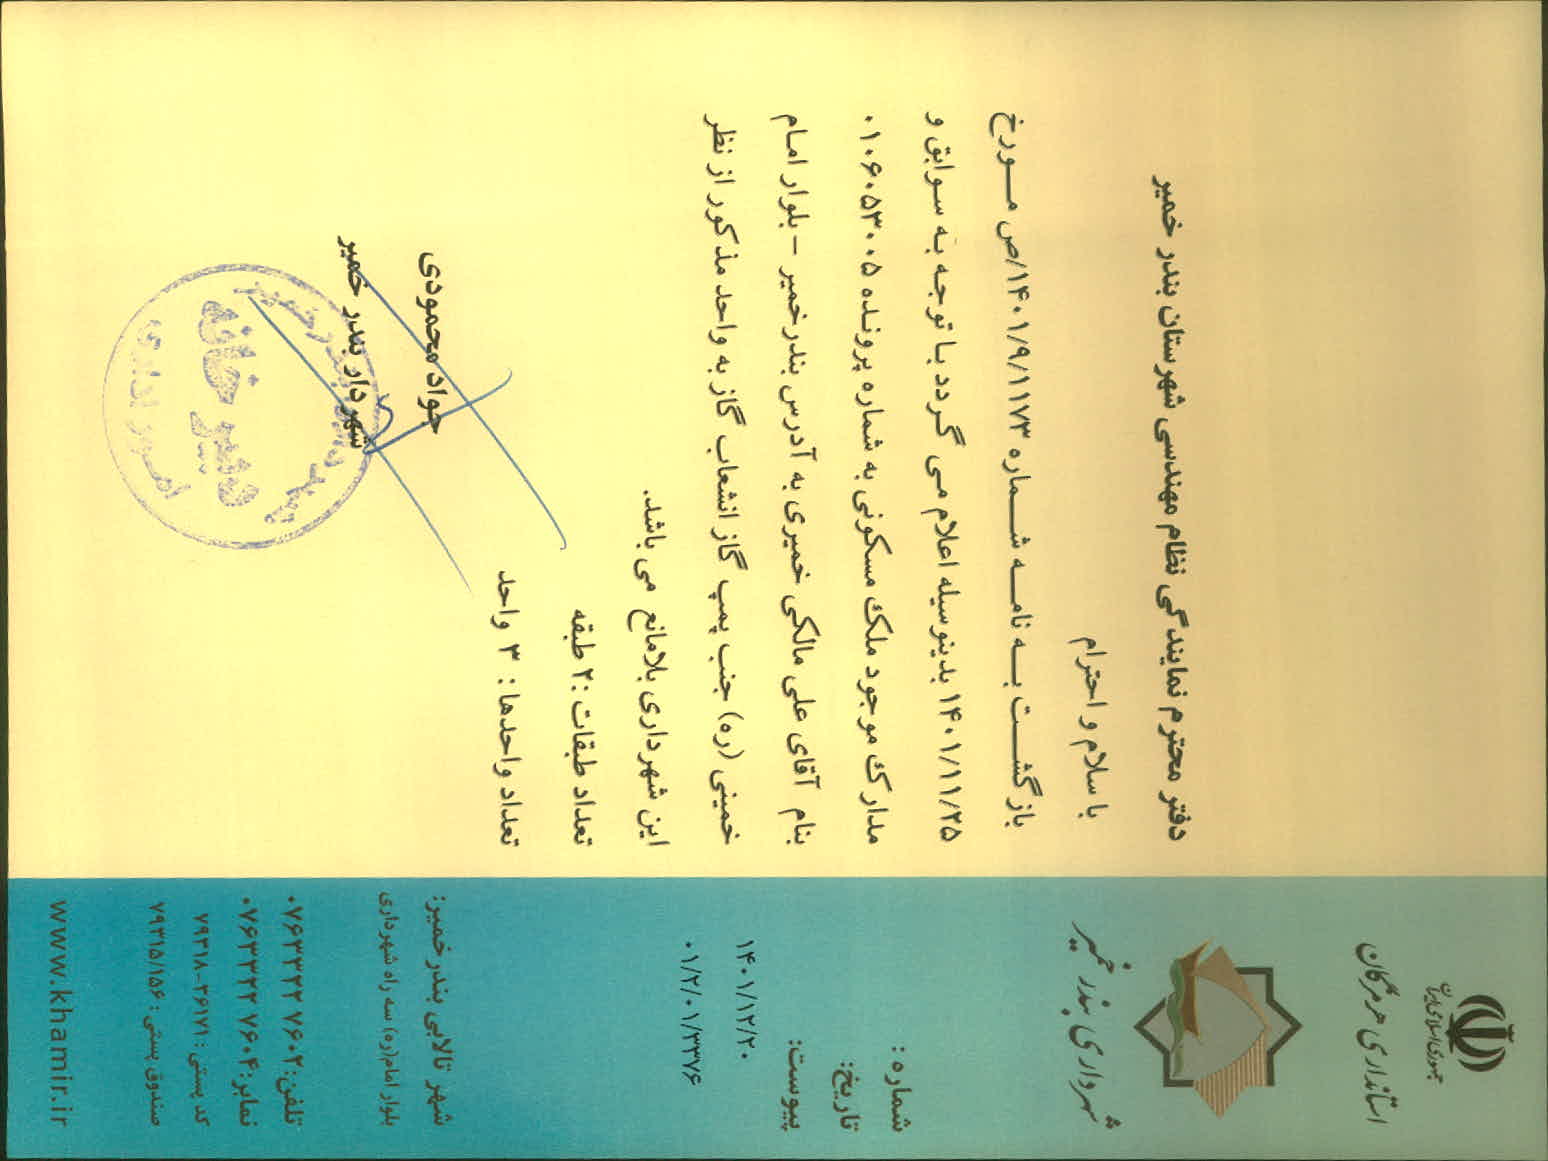 جمهوری اسلامی ایران
استانداری هرمزگان
شهرداری بندر خمیر
شماره :
تاریخ:
پیوست:
۱۴۰۱/۱۲/۲۰
۰۱/۲/۰۱/۳۳۷۶
دفتر محترم نمایندگی نظام مهندسی شهرستان بندر خمیر
با سلام و احترام
بازگشت به نامه شماره ۱۴۰۱/۹/۱۱۷۳/ص مورخ
۱۴۰۱/۱۱/۲۵ بدینوسیله اعلام می گردد با توجه به سوابق و
مدارک موجود ملک مسکونی به شماره پرونده ۰۱۰۶۰۵۳۰۰۵
بنام آقای علی مالکی خمیری به آدرس بندرخمیر - بلوار امام
خمینی (ره) جنب پمپ گاز انشعاب گاز به واحد مذکور از نظر
این شهرداری بلامانع می باشد.
تعداد طبقات :۲ طبقه
تعداد واحدها : ۳ واحد
جواد محمودی
شهردار بندر خمیر
بندر خمیر
دبیرخانه
امور اداری
شهر تالابی بندرخمیر:
بلوار امام(ره) سه راه شهرداری
تلفن: ۰۷۶۳۳۲۲ ۷۶۰۲
نمابر: ۰۷۶۳۳۲۲ ۷۶۰۴
کد پستی : ۳۶۱۷۱-۷۹۳۱۸
صندوق پستی : ۷۹۳۱۵/۱۵۶
www.khamir.ir